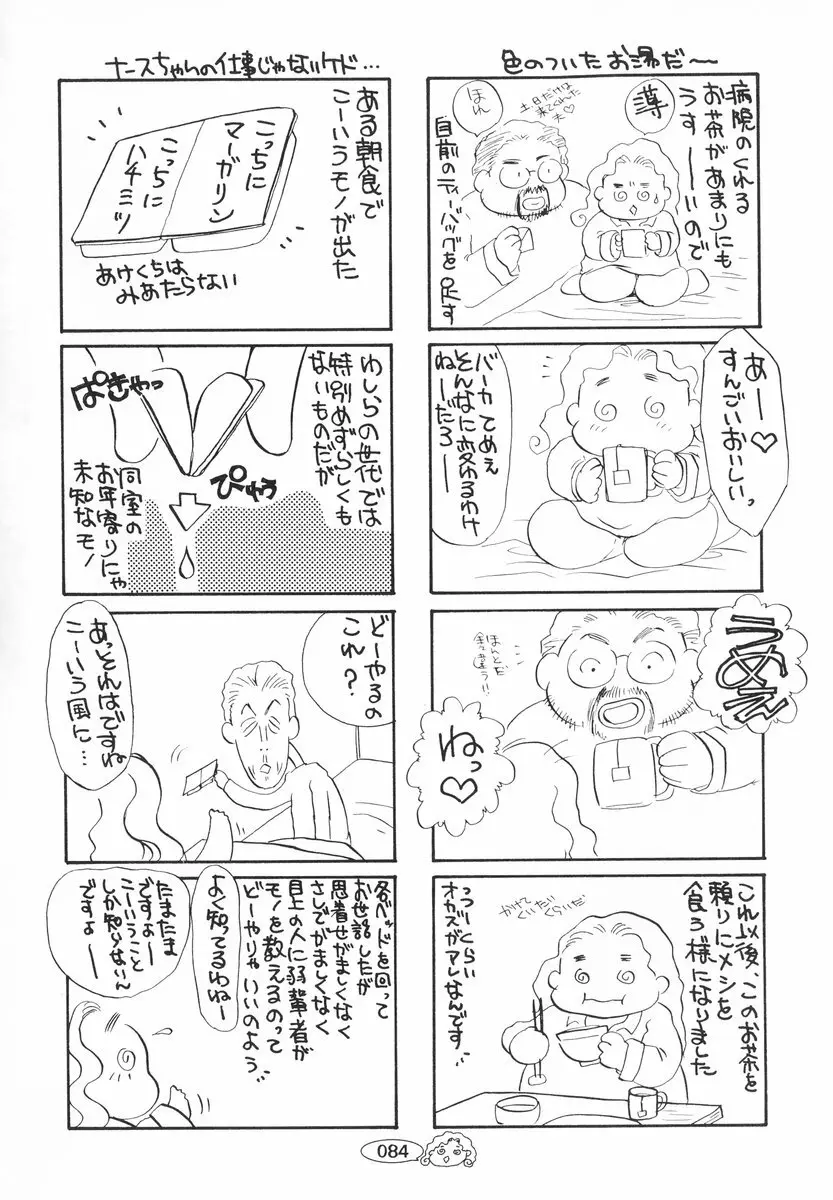 色のついたお湯だ～
病院のくれる
お茶があまりにも
うすーーいので
薄
ほん
土日だけは
来てくれた♡
夫
自前のティーバッグを足す
あー♡
すんごいおいしいっ
バーカてめえ
そんなに変るわけ
ねーだろー
うめえ
ほんとだ
全然違う!!
ねっ♡
これ以後、このお茶を
頼りにメシを
食う様になりました
っつーくらい
オカズがアレなんです
ナースちゃんの仕事じゃないケド…
ある朝食で
こーいうモノが出た
こっちに
マーガリン
こっちに
ハチミツ
あけくちは
みあたらない
わしらの世代では
特別めずらしくも
ないものだが
ぱきゃっ
ぴゅう
同室の
お年寄りにゃ
未知なモノ
どーやるの
これ?
あっそれはですね
こーいう風に…
各ベッドを回って
お世話したが
恩着せがましくなく
さしでがましくなく
目上の人に若輩者が
モノを教えるのって
どーやりゃいいのよう
よく知ってるわねー
たまたま
ですよー
こーいうこと
しか知らないん
ですよー
084